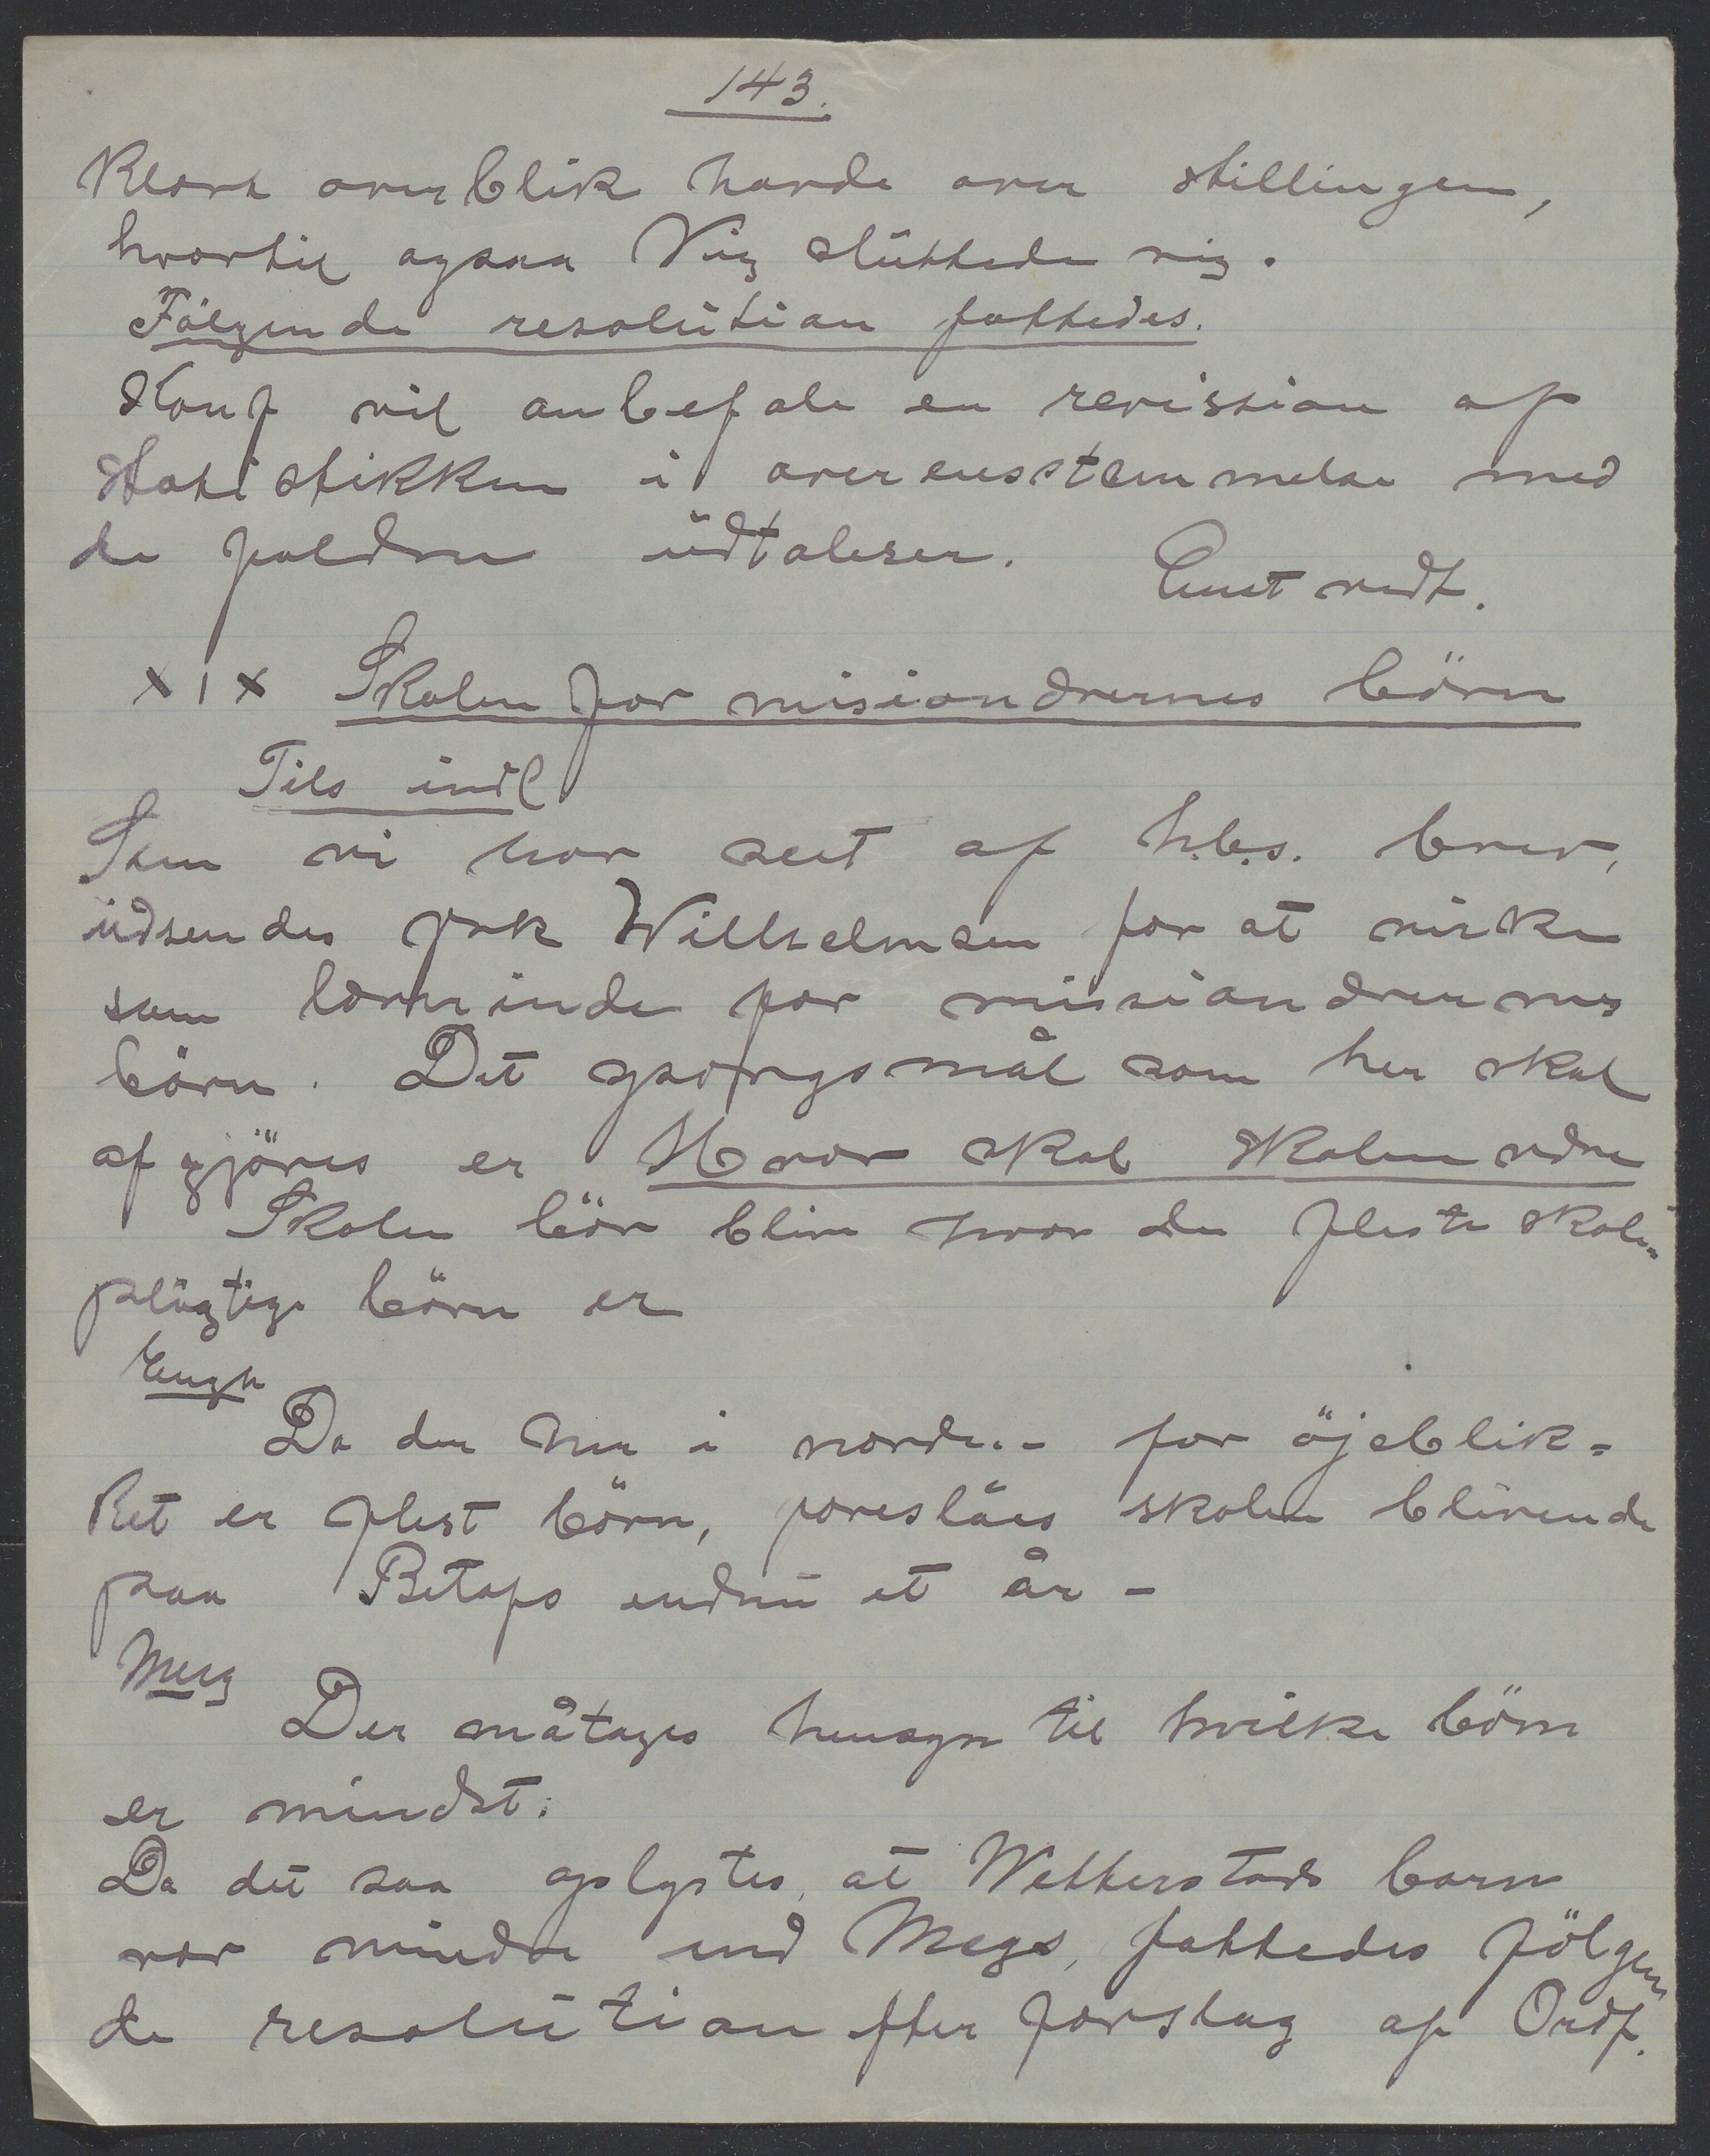 143.
klart overblik havde over stillingen,
hvortil ogsaa Vig slüttede sig.
Fölgende resolütion fattedes.
Konf vil anbefale en revission af
Statistikken i overensstemmelse med
de faldne üdtaleser. Enst vedt.
XIX Skolen for misionærernes börn
Tils indl
Som vi har seet af h.b.s. brev,
üdsendes frk Wilhelmsen for at virke
som lærerinde for missionærernes
börn. Det spörgsmål som her skal
afgjöres er Hvor skal skolen være
Skolen bör blive hvor de fleste skole=
pligtige börn er
Engh
Da der her i norden for öjeblik=
ket er flest börn, foreslåes skolen blivende
paa Betafo endnü et år -
Meeg
Der måtages hensyn til hvilke börn
er mindst.
Da det saa oplystes, at Wetterstads barn
var mindre end Megs, fattedes fölgen
de resolütion efter forslag af Ordf.